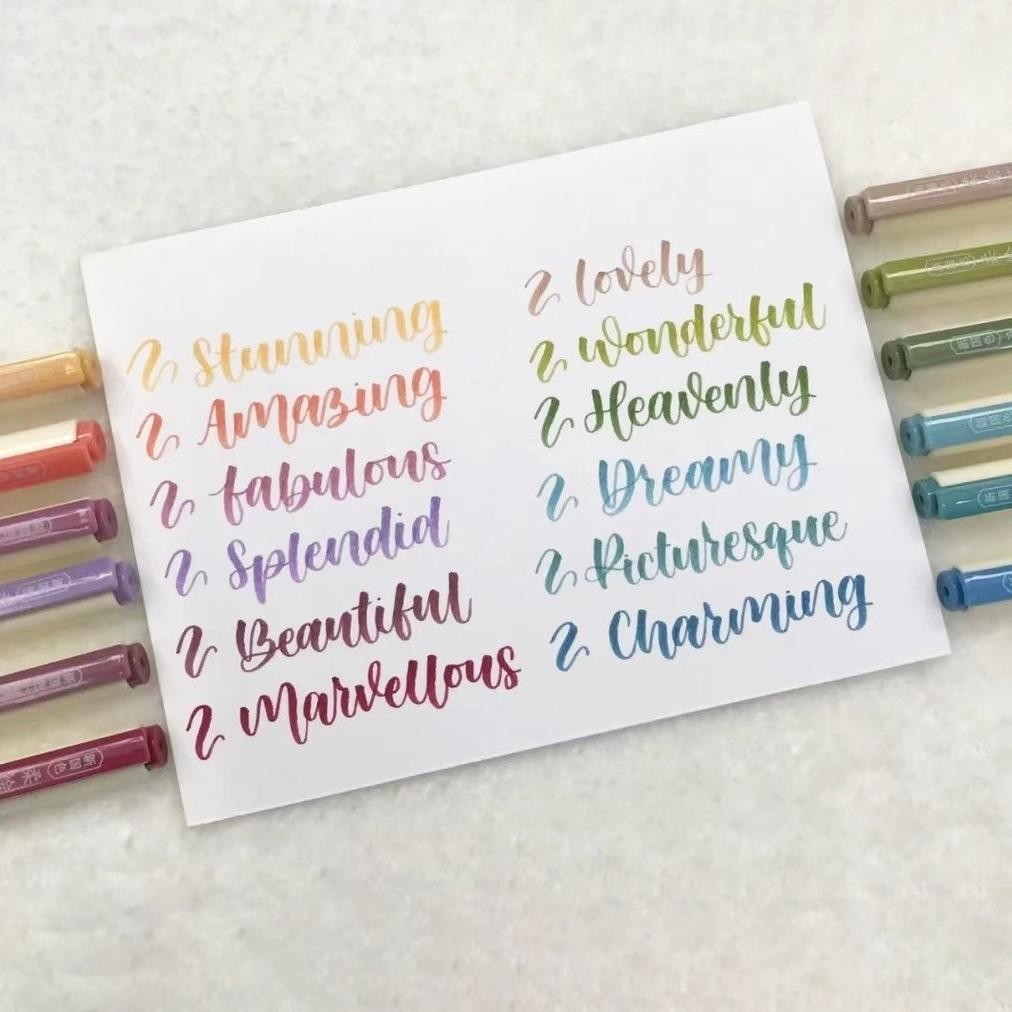 Stunning
Amazing
fabulous
Splendid
Beautiful
Marvellous
lovely
Wonderful
Heavenly
Dreamy
Picturesque
Charming